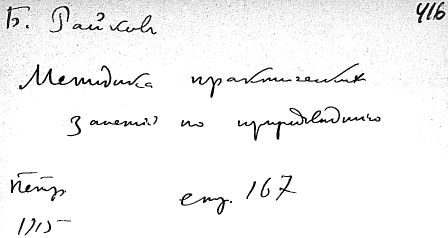 Б. Райков
416
Методика практических
занятій по природовѣдѣнію
Петр
стр. 167
1915